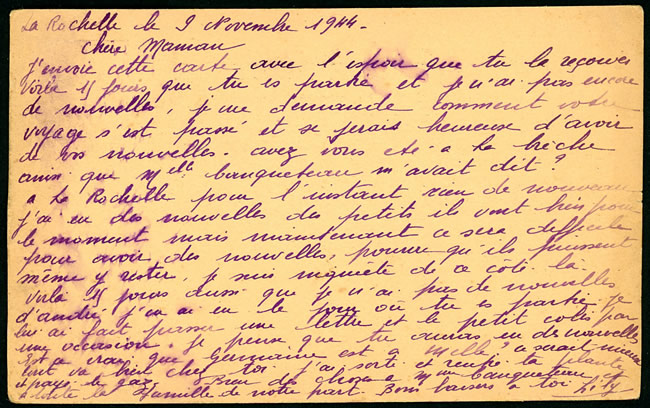 La Rochelle le 9 Novembre 1944.
Chère Maman
J'envoie cette carte avec l'espoir que tu la reçoives
Voilà 15 jours que tu es partie et je n'ai pas encore
de nouvelles, je me demande comment votre
voyage s'est passé et se serais heureuse d'avoir
de vos nouvelles. avez vous été à La brèche
ainsi que Melle banqueteau m'avait dit?
a La Rochelle pour l'instant rien de nouveau
j'ai eu des nouvelles des petits ils vont bien pour
le moment mais maintenant ce sera difficile
pour avoir des nouvelles, pourvu qu'ils puissent
même y rester, je suis inquiète de ce côté là.
Voilà 15 jours aussi que je n'ai pas de nouvelles
d'andré j'en ai eu le jour où tu es partie je
lui ai fait passer une lettre et le petit colis par
une occasion. je pense que tu auras eu de nouvelles
Est ce vrai que Germaine est a Melle? ce serait mieux
tout va bien chez toi j'ai sorti et rentré ta plante
et payé le gaz. Bien des choses a Mme banqueteau et
a toute la famille de notre part. Bons baisers a toi Lily